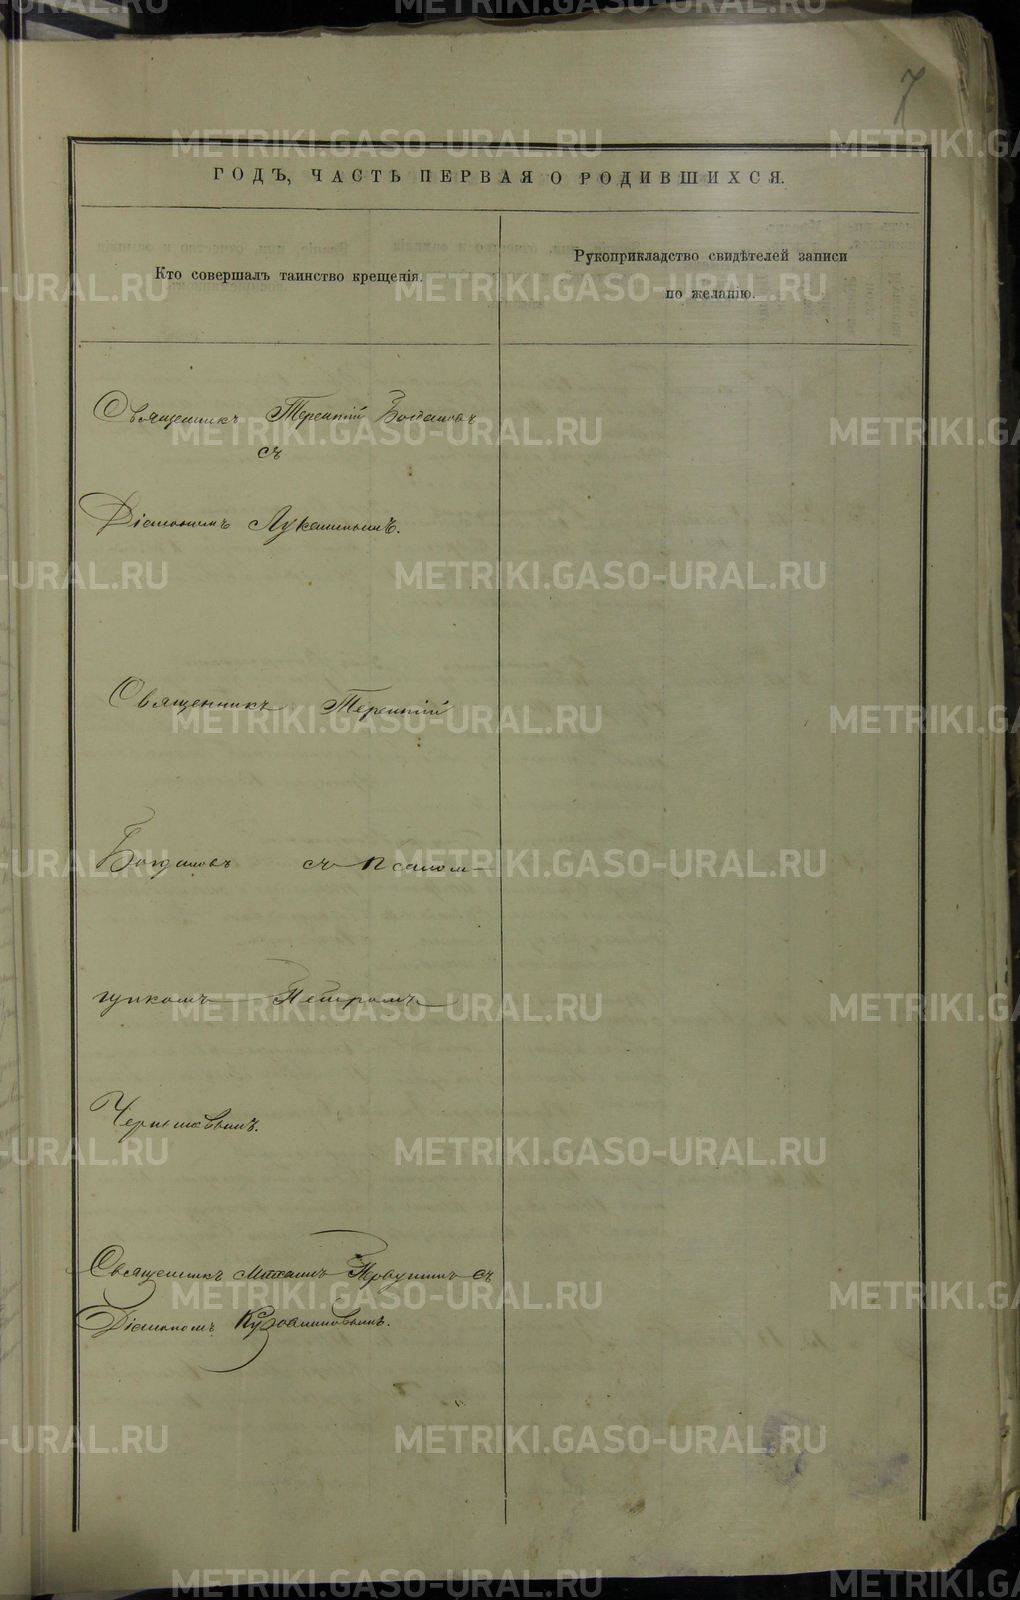 METRIKI.GASO-URAL.RU
7
ГОДЪ, ЧАСТЬ ПЕРВАЯ О РОДИВШИХСЯ.
Кто совершалъ таинство крещенія.
Рукоприкладство свидѣтелей записи
по желанію.
Священникъ Терентій Богдановъ
съ
Діакономъ Лукашинымъ.
Священникъ Терентій
Богдановъ съ псалом-
щикомъ Петромъ
Чернышовымъ.
Священникъ Михаилъ Первушинъ съ
Діакономъ